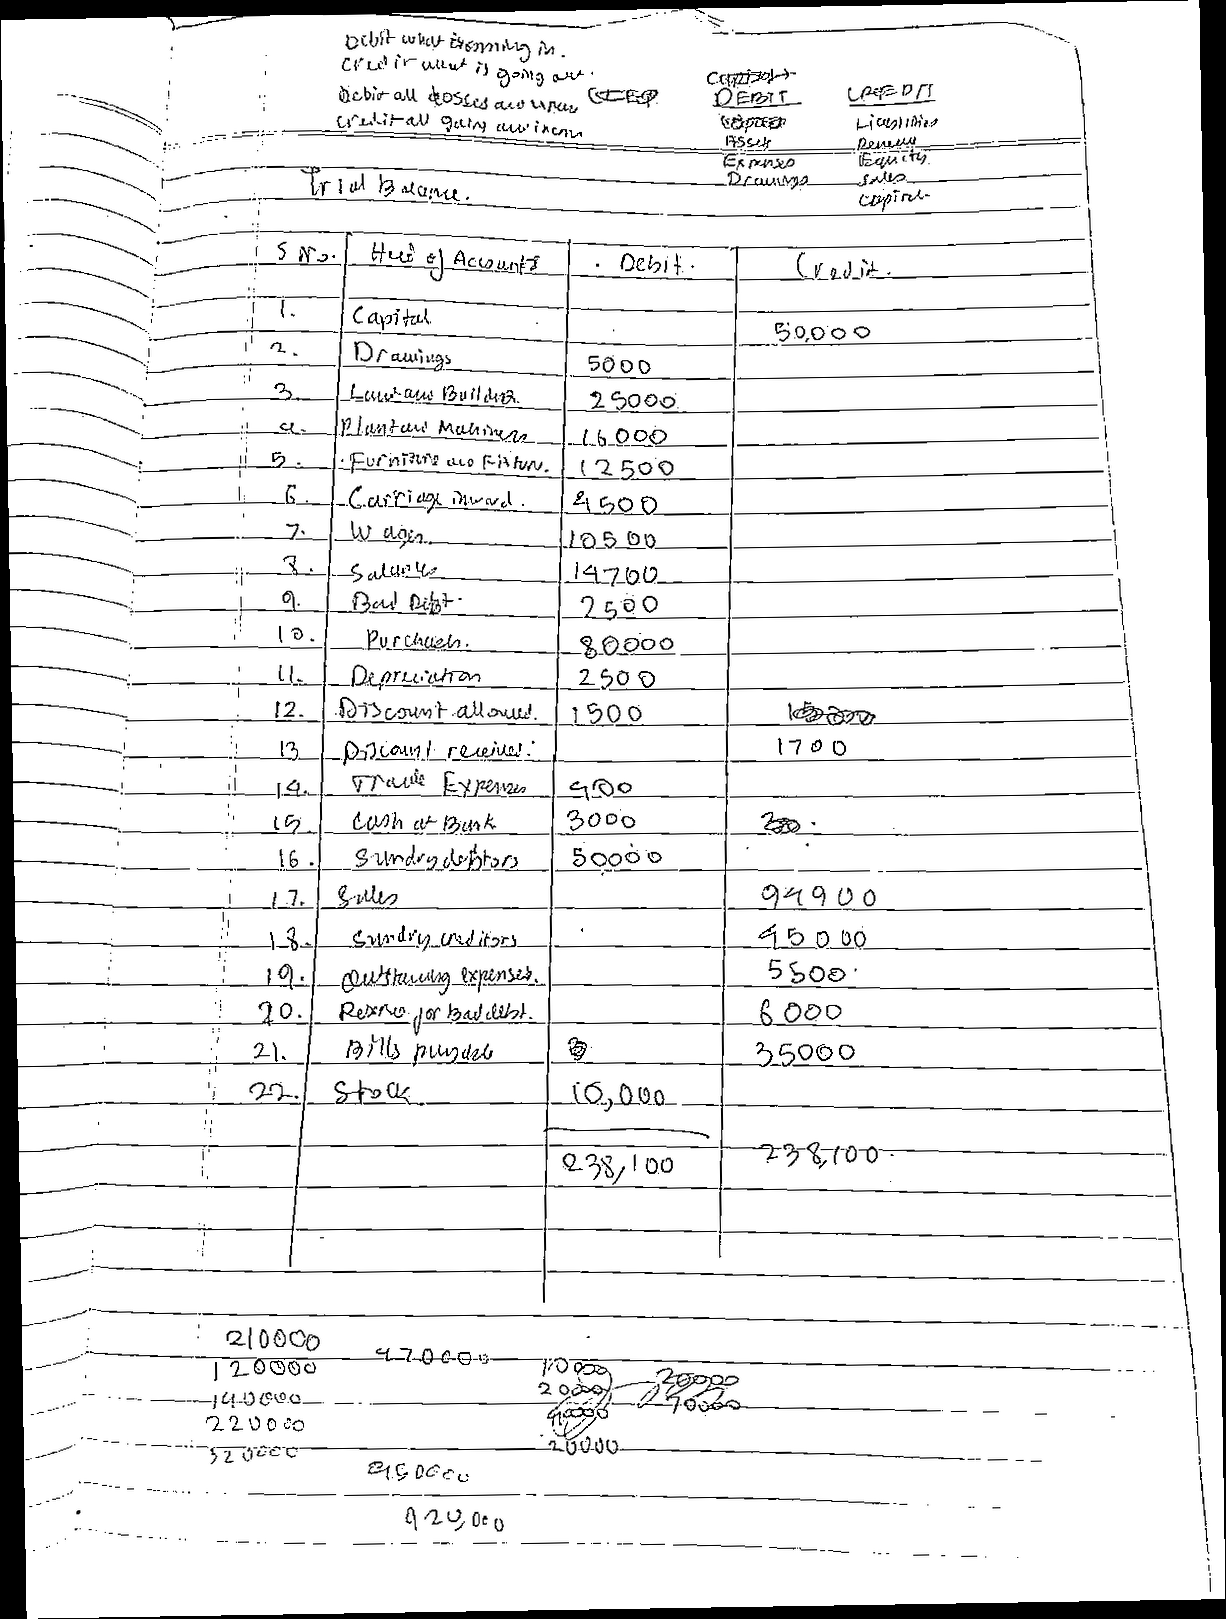 Debit what is coming in.
Credit what is going out.
Debit all losses and
credit all gains and
DEBIT CREDIT
Liabilities
Assets
Expenses Equity
Drawings Sales
Capital
Trial Balance.
S No. Head of Accounts Debit. Credit.
1. Capital 50,000
2. Drawings 5000
3. Land and Building 25000
4. Plant and Machinery 16000
5. Furniture and Fixture. 12500
6. Carriage inward. 4500
7. Wages 10500
8. Salaries 14700
9. Bad Debt. 2500
10. Purchases. 80000
11. Depreciation 2500
12. Discount allowed. 1500
13 Discount received. 1700
14. Trade Expenses 400
15 Cash at Bank 3000
16. Sundry debtors 50000
17. Sales 94900
18. Sundry creditors 45000
19. Outstanding expenses. 5500
20. Reserve for Bad debt. 6000
21. Bills payable 35000
22. Stock 10,000
238,100 238,100
210000
470000
120000 10000 20000
140000 20000 70000
220000 40000
320000 20000
950000
920,000